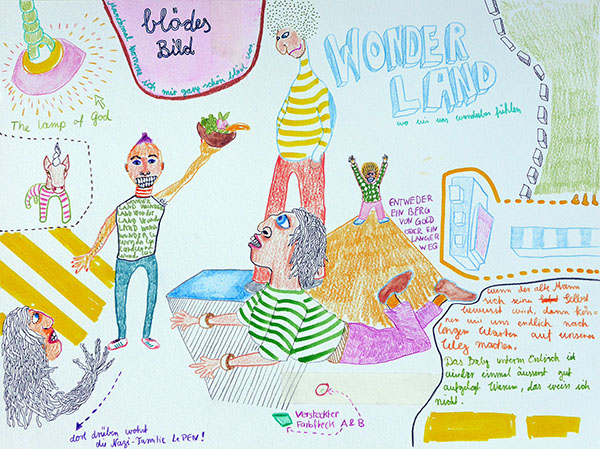 blödes
Bild
Manchmal komme ich mir ganz schön blöd vor
WONDER
LAND
wo wir uns wunderbar fühlen
The lamp of God
WONDER
LAND
ENTWEDER
EIN BERG
VON GOLD
ODER EIN
LANGER
WEG
wenn der alte Mann
sich seiner Selbst
bewusst wird, dann kön-
nen wir uns endlich nach
langem Warten auf unseren
Weg machen.
Das Baby unterm Esstisch ist
wieder einmal äusserst gut
aufgelegt Warum, das weiss ich
nicht.
Versteckter
Farbfleck A & B
dort drüben wohnt
die Nazi-Familie Le PEN!